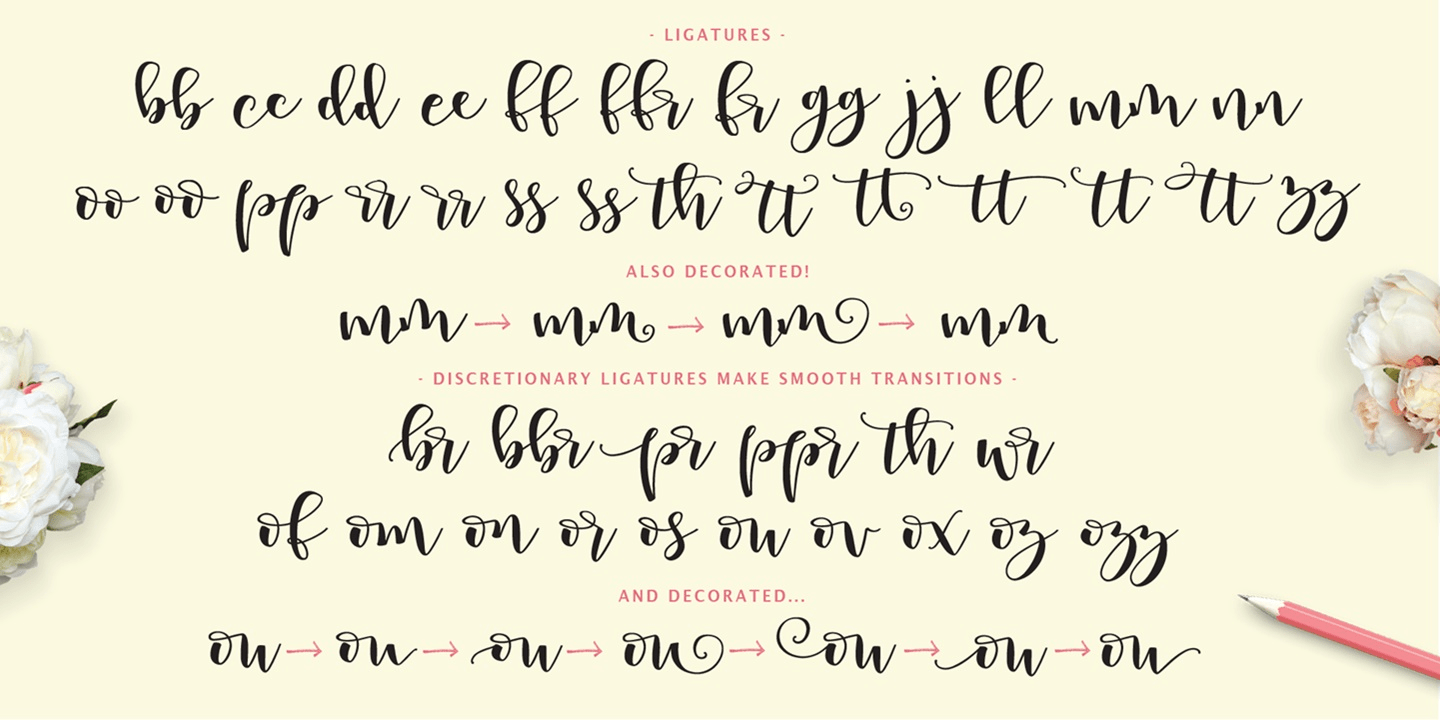 - LIGATURES -
bb cc dd ee ff ffr fr gg jj ll mm nn
oo oo pp rr rr ss ss th tt tt tt tt tt zz
ALSO DECORATED!
mm → mm → mm → mm
- DISCRETIONARY LIGATURES MAKE SMOOTH TRANSITIONS -
br bbr pr ppr th wr
of om on or os ow ov ox oz ozz
AND DECORATED...
ow → ow → ow → ow → ow → ow → ow